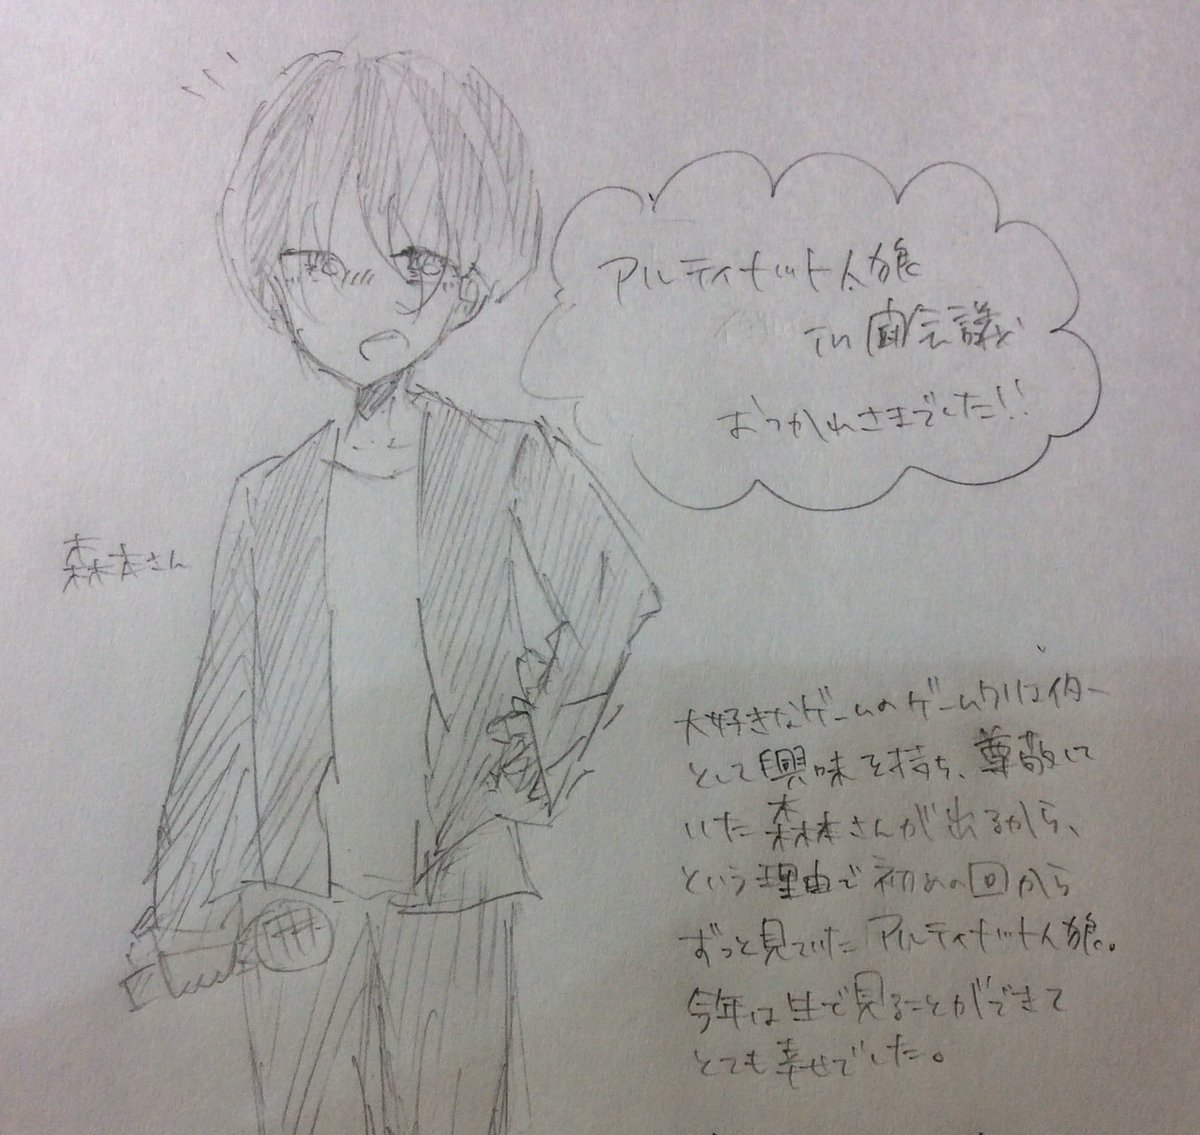 アルティメット人狼
in 闘会議
おつかれさまでした!!
森本さん
大好きなゲームのゲームクリエイター
として興味を持ち、尊敬して
いた森本さんが出るから、
という理由で初めの回から
ずっと見ていたアルティメット人狼。
今年は生で見ることができて
とても幸せでした。